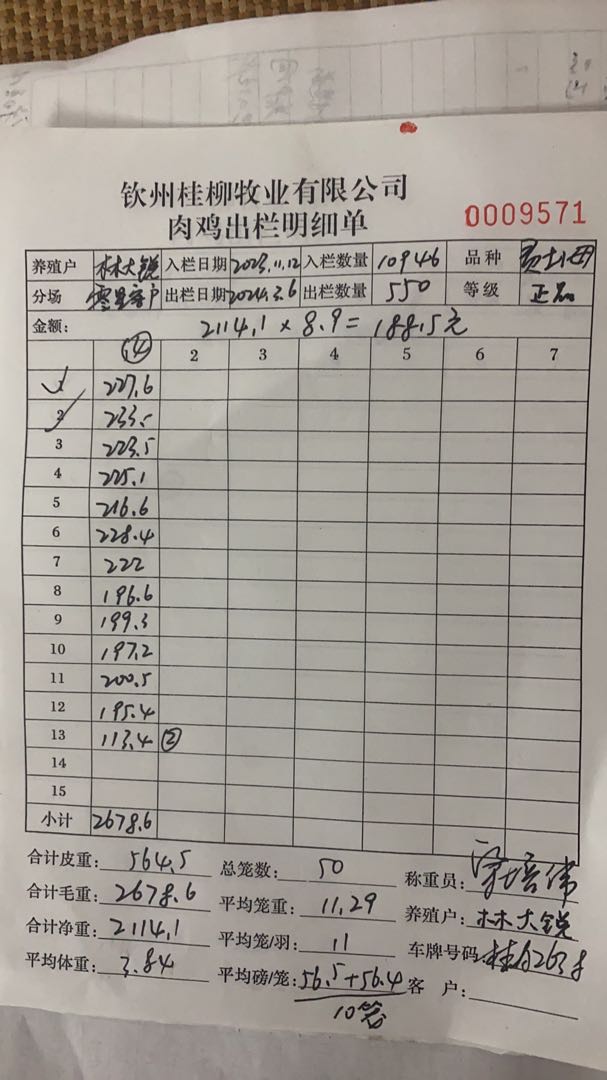 钦州桂柳牧业有限公司
肉鸡出栏明细单
0009571
养殖户 林大锐 入栏日期 2023.11.12 入栏数量 10946 品种
分场 零星客户 出栏日期 2024.3.6 出栏数量 550 等级 正品
金额: 2114.1 × 8.9 = 18815元
④ 2 3 4 5 6 7
1 227.6
2 233.5
3 223.5
4 225.1
5 216.6
6 228.4
7 222
8 196.6
9 199.3
10 197.2
11 200.5
12 195.4
13 113.4 ②
14
15
小计 2678.6
合计皮重: 564.5 总笼数: 50 称重员:
合计毛重: 2678.6 平均笼重: 11.29 养殖户: 林大锐
合计净重: 2114.1 平均笼/羽: 11 车牌号码:
平均体重: 3.84 平均磅/笼: 56.5+56.4 客 户:
10笼